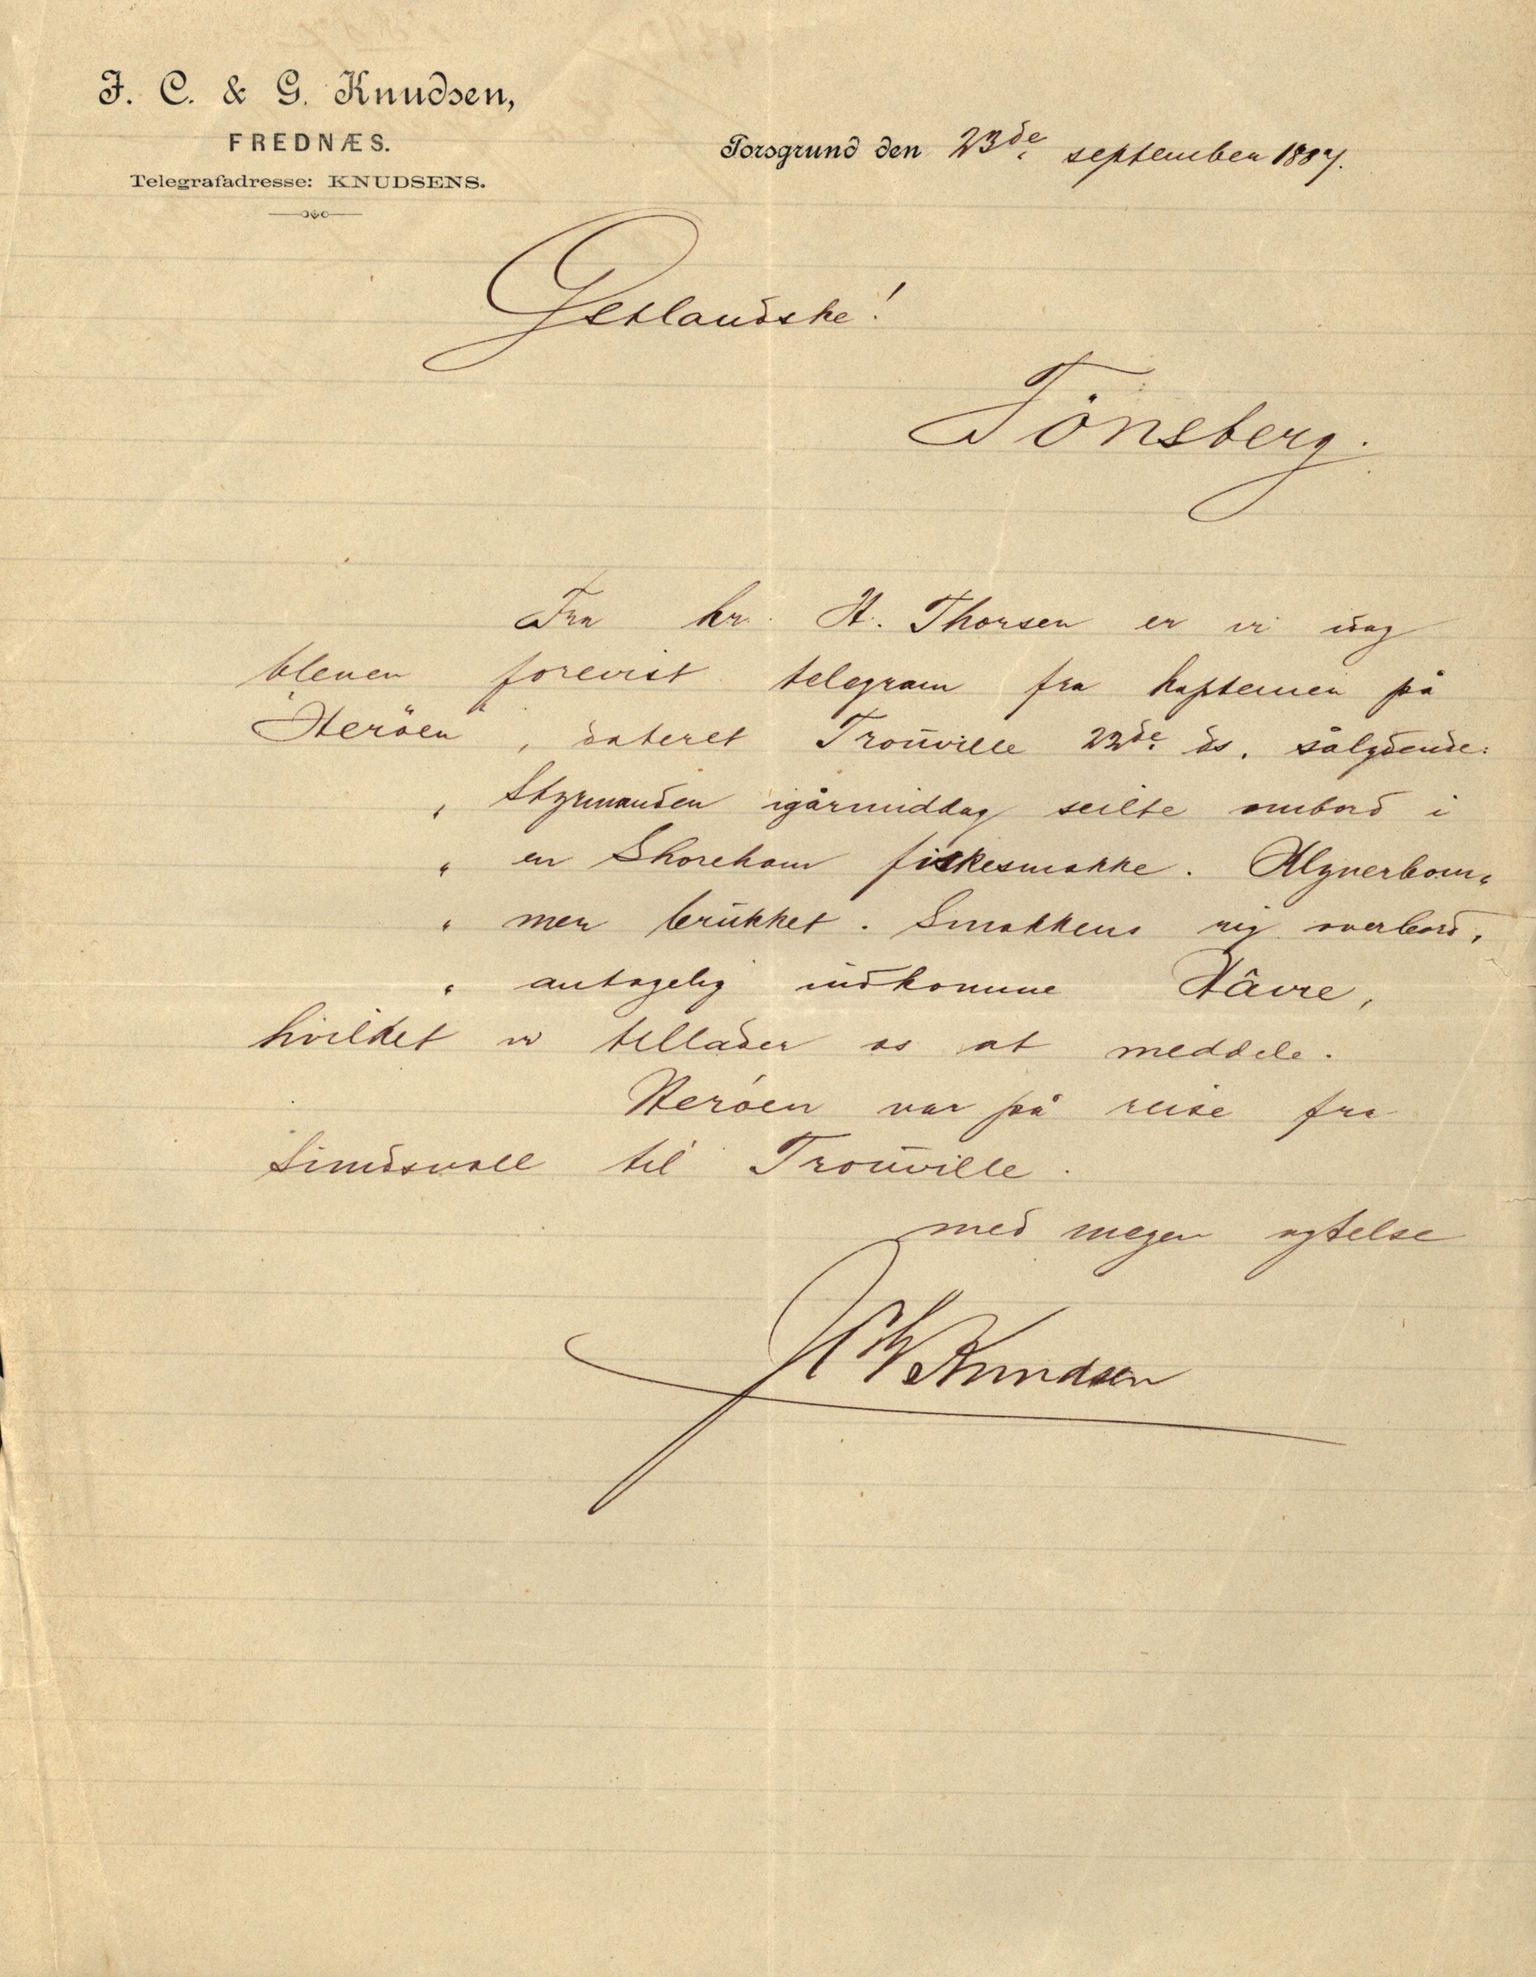 J. C. & G. Knudsen,
FREDNÆS.
Telegrafadresse: KNUDSENS.
Porsgrund den 23de september 1887.
Tönsberg.
Fra hr. H. Thorsen er vi idag
bleven forevist telegram fra kapteinen på
"Heröen", dateret Trouville 22de ds. sålydende:
" Styrmanden igårmiddag seilte ombord i
" en Shoreham fiskesmakke. Klyverbom-
" men brukket. Smakkens rig overbord,
" antagelig indkomme Hâvre,
hvilket vi tillader os at meddele.
Heröen var på reise fra
Sundsvall til Trouville.
med megen agtelse
J C & G Knudsen